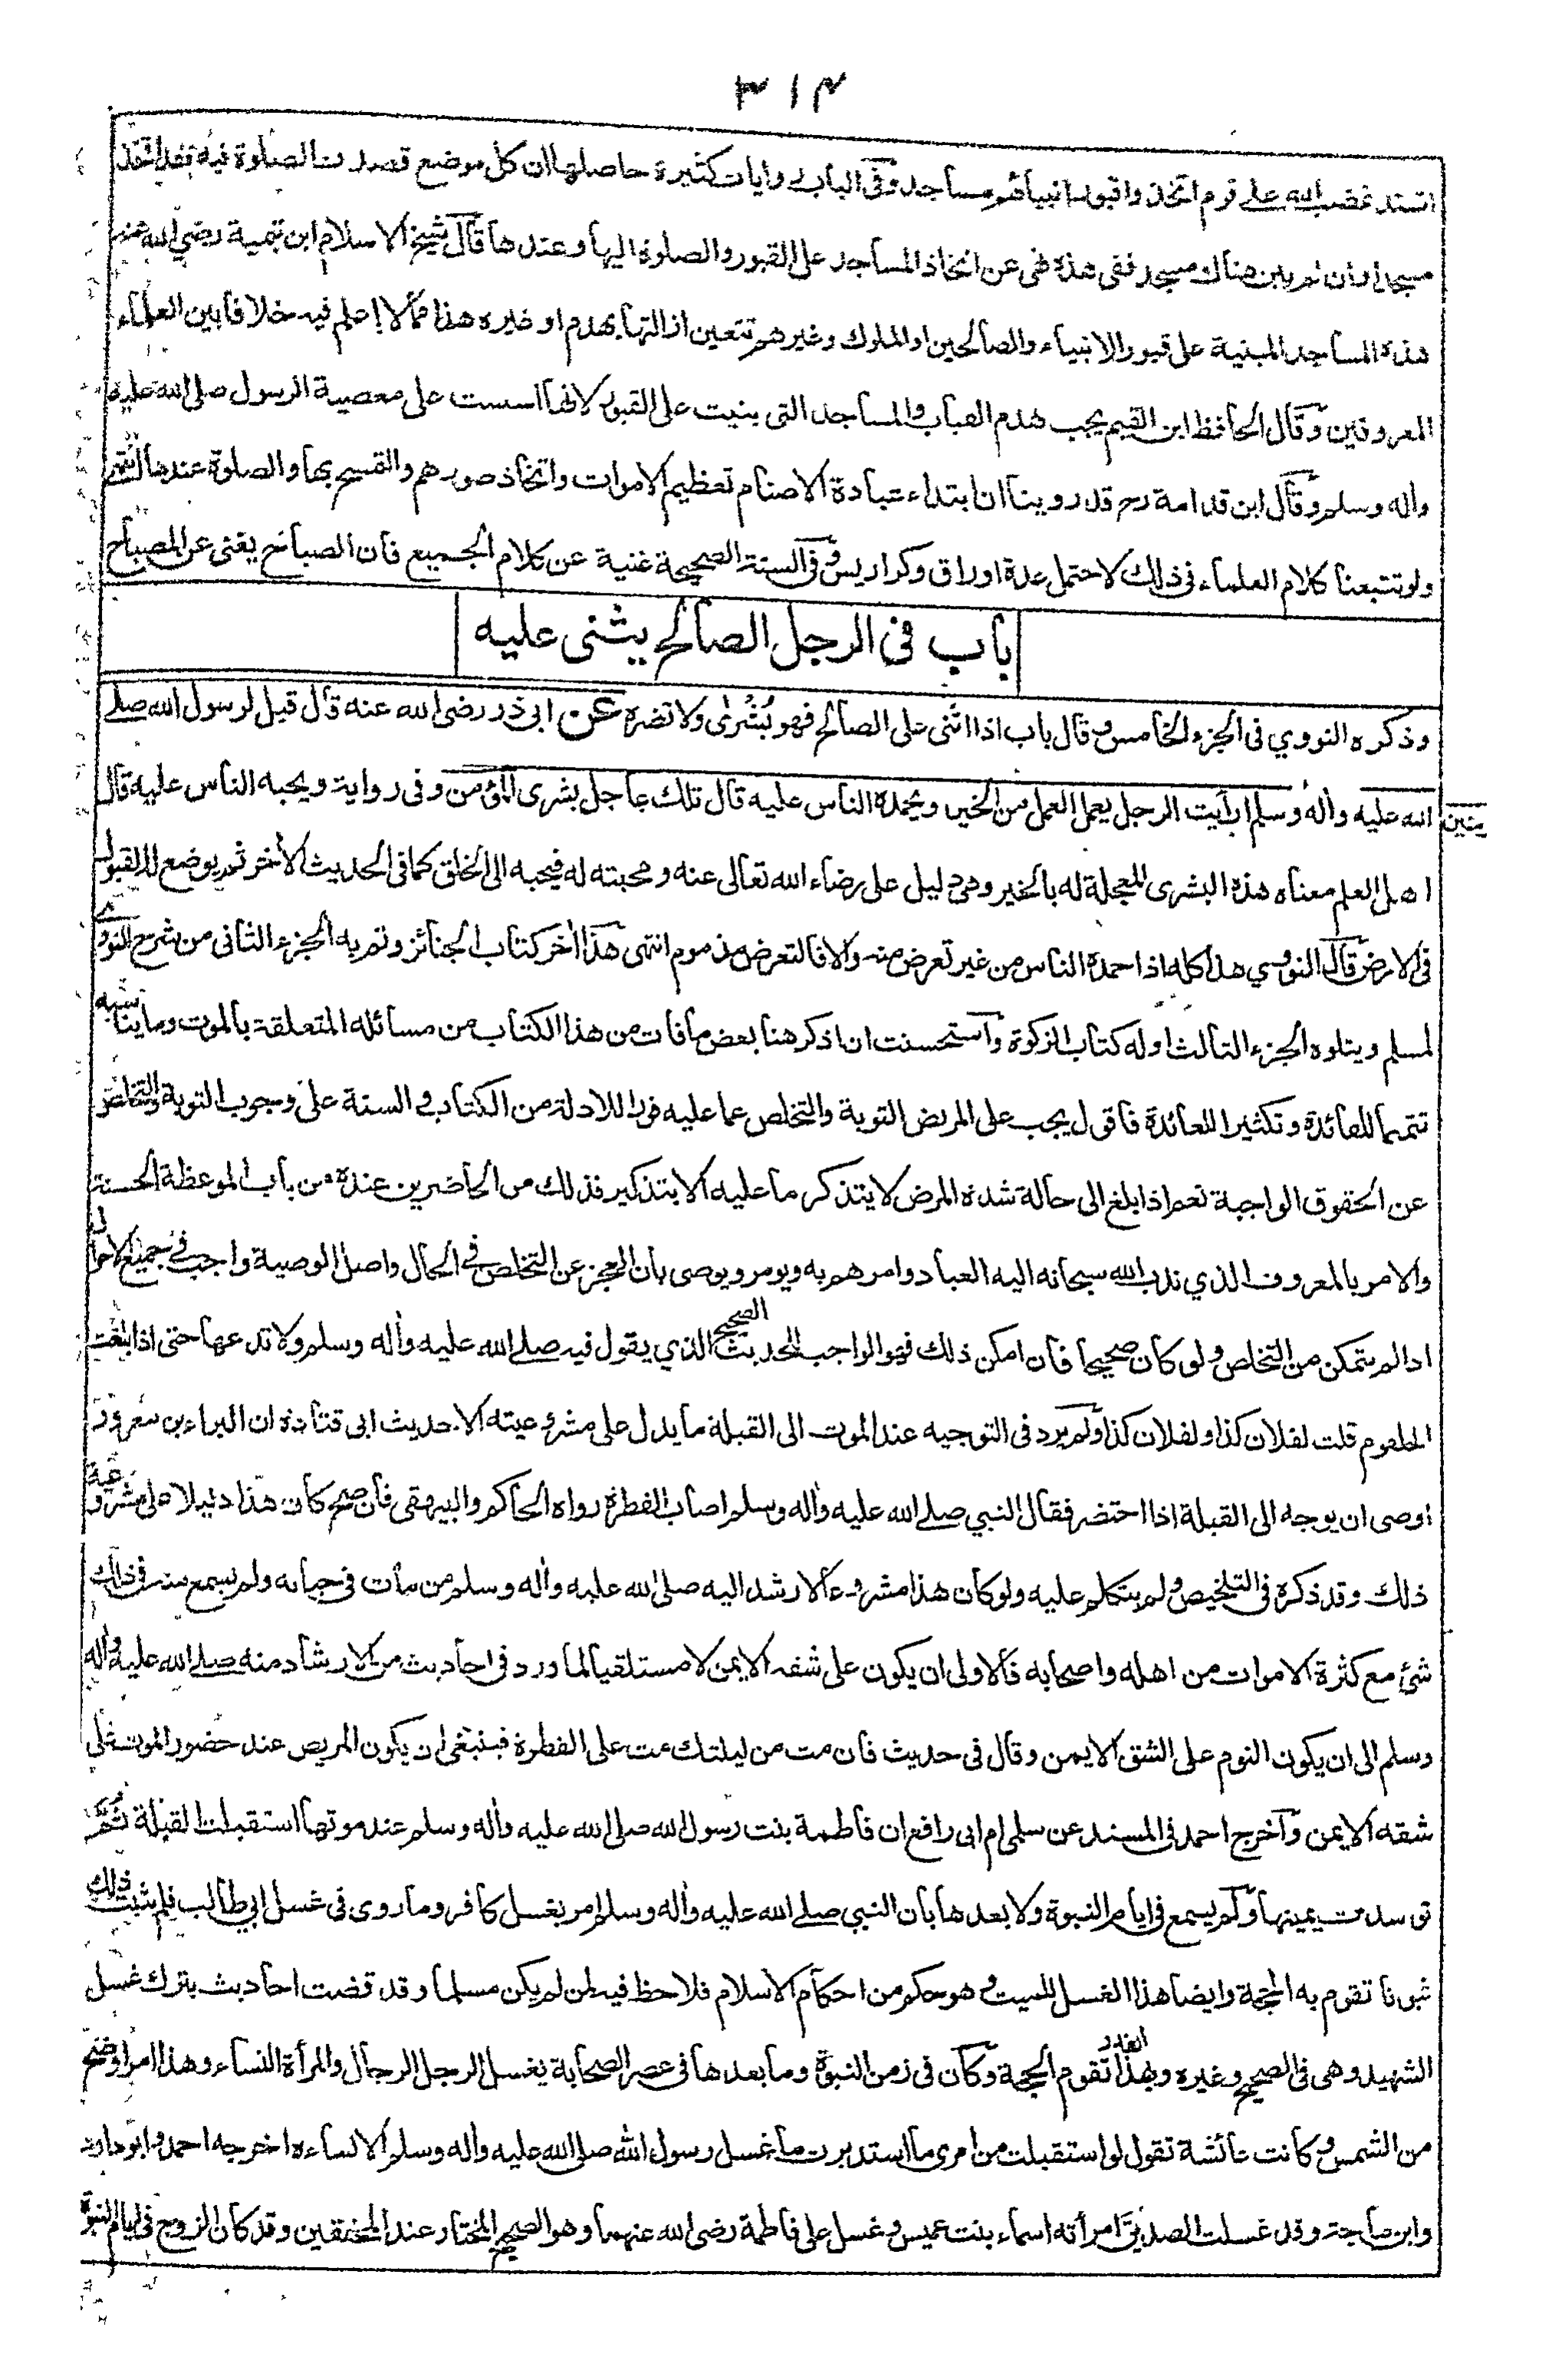 ٣١٤
اشتد غضب الله على قوم اتخذوا قبور انبيائهم مساجد وفى الباب روايات كثيرة حاصلها ان كل موضع قصدت الصلوة فيه فقد اتخذ
مسجدا وان لم يبن هناك مسجد ففى هذه نهى عن اتخاذ المساجد على القبور والصلوة اليها وعندها قال شيخ الاسلام ابن تيمية رضي الله عنه
هذه المساجد المبنية على قبور الانبياء والصالحين او الملوك وغيرهم تتعين ازالتها بهدم او غيره هذا مما لا اعلم فيه خلافا بين العلماء
المعروفين وقال الحافظ ابن القيم يجب هدم القباب والمساجد التى بنيت على القبور لانها اسست على معصية الرسول صلى الله عليه
واله وسلم وقال ابن قدامة رح قد روينا ان ابتداء عبادة الاصنام تعظيم الاموات واتخاذ صورهم والتمسح بها والصلوة عندها انتهى
ولو تتبعنا كلام العلماء فى ذلك لاحتمل عدة اوراق وكراريس وفى السنة الصحيحة غنية عن كلام الجميع فان الصباح يغنى عن المصباح
باب فى الرجل الصالح يثنى عليه
وذكره النووي فى الجزء الخامس وقال باب اذا اثنى على الصالح فهو بُشْرٰى ولا تضره عن ابى ذر رضى الله عنه قال قيل لرسول الله صلى
الله عليه واله وسلم ارأيت الرجل يعمل العمل من الخير ويحمده الناس عليه قال تلك عاجل بشرى المؤمن وفى رواية ويحبه الناس عليه قال
منين
اهل العلم معناه هذه البشرى المعجلة له بالخير وهى دليل على رضاء الله تعالى عنه ومحبته له فيحببه الى الخلق كما فى الحديث الأخر ثم يوضع له القبول
فى الارض قال النووي هذا كله اذا حمده الناس من غير تعرض منه والا فالتعرض مذموم انتهى هذا أخر كتاب الجنائز وتم به الجزء الثانى من شرح النووي
لمسلم ويتلوه الجزء الثالث اوله كتاب الزكوة واستحسنت ان اذكر هنا بعض ما فات من هذا الكتاب من مسائله المتعلقة بالموت وما يناسبه
تتميما للفائدة وتكثيرا للعائدة فاقول يجب على المريض التوبة والتخلص عما عليه فورا للادلة من الكتاب والسنة على وجوب التوبة والتخلص
عن الحقوق الواجبة نعم اذا بلغ الى حالة شدة المرض لا يتذكر ما عليه الا بتذكير فذلك من الحاضرين عنده من باب الموعظة الحسنة
والامر بالمعروف الذي ندب الله سبحانه اليه العباد وامرهم به ويومر ويوصى بان العجز عن التخلص فى الحال واصل الوصية واجب فى جميع الاحوال
اذا لم يتمكن من التخلص ولو كان صحيحا فان امكن ذلك فهو الواجب للحديث الصحيح الذي يقول فيه صلى الله عليه واله وسلم ولا تدعها حتى اذا بلغت
الحلقوم قلت لفلان كذا ولفلان كذا ولم يرد فى التوجيه عند الموت الى القبلة ما يدل على مشروعيته الا حديث ابى قتادة ان البراء بن معرور
اوصى ان يوجه الى القبلة اذا احتضر فقال النبي صلى الله عليه واله وسلم اصاب الفطرة رواه الحاكم والبيهقى فان صح كان هذا دليلا على مشروعية
ذلك وقد ذكره فى التلخيص ولم يتكلم عليه ولو كان هذا مشروعا لارشد اليه صلى الله عليه واله وسلم من مات فى حياته ولم يسمع منه فى ذلك
شئ مع كثرة الاموات من اهله واصحابه فالاولى ان يكون على شقه الايمن لا مستلقيا لما ورد فى احاديث من الارشاد منه صلى الله عليه واله
وسلم الى ان يكون النوم على الشق الايمن وقال فى حديث فان مت من ليلتك مت على الفطرة فينبغى ان يكون المريض عند حضور الموت على
شقه الايمن واخرج احمد فى المسند عن سلمى ام ابى رافع ان فاطمة بنت رسول الله صلى الله عليه واله وسلم عند موتها استقبلت القبلة ثم
توسدت يمينها ولم يسمع فى ايام النبوة ولا بعدها بان النبي صلى الله عليه واله وسلم امر بغسل كافر وما روى فى غسل ابي طالب فلم يثبت ذلك
ثبوتا تقوم به الحجة وايضا هذا الغسل للميت هو حكم من احكام الاسلام فلا حظ فيه لمن لم يكن مسلما وقد قضت احاديث بترك غسل
الشهيد وهى فى الصحيح وغيره وبهذا القدر تقوم الحجة وكان فى زمن النبوة وما بعدها فى عصر الصحابة يغسل الرجل الرجال والمرأة النساء وهذا امر اوضح
من الشمس وكانت عائشة تقول لو استقبلت من امرى ما استدبرت ما غسل رسول الله صلى الله عليه واله وسلم الا نساءه اخرجه احمد وابو داود
وابن ماجة وقد غسلت الصديق امرأته اسماء بنت عميس وغسل على فاطمة رضى الله عنهما وهو الصحيح المختار عند المحققين وقد كان الزوج فى ايام النبوة